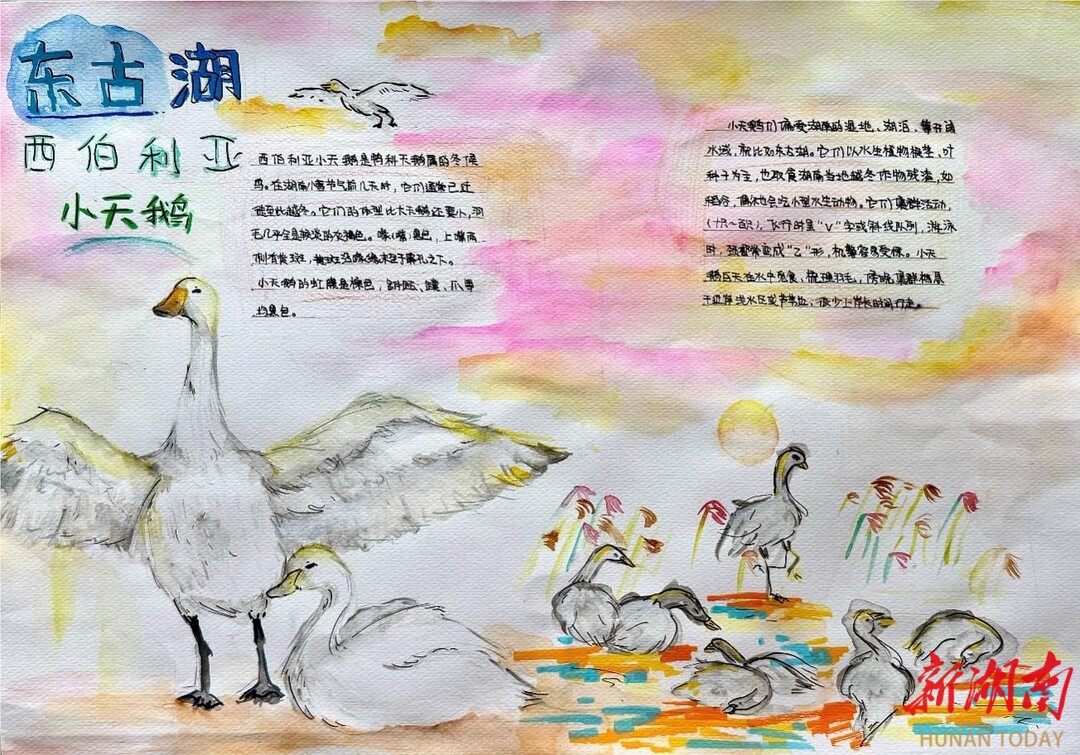 东古湖
西伯利亚
小天鹅
西伯利亚小天鹅是鸭科天鹅属的冬候
鸟。在湖南小雪节气前几天时，它们通常已迁
徙至此越冬。它们的体型比大天鹅还要小，羽
毛几乎全是 的灰褐色。嘴（喙）黑色，上嘴两
侧有黄斑，黄斑沿嘴缘 于鼻孔之下。
小天鹅的虹膜是棕色，跗跖、蹼、爪等
均黑色。
小天鹅们偏爱湖南的湿地、湖泊、等开阔
水域，就比如东古湖。它们以水生植物根茎、叶
种子为主，也取食湖南当地越冬作物残渣，如
稻谷，偶尔也会吃小型水生动物。它们集群活动，
（十只~百只），飞行时呈“V”字或斜线队列，游泳
时，颈部常变成“乙”形，机警容易受惊。小天
鹅白天在水中觅食、梳理羽毛，傍晚集群栖息
于边岸浅水区或芦苇边，很少上岸长时间行走。
新湖南
HUNAN TODAY